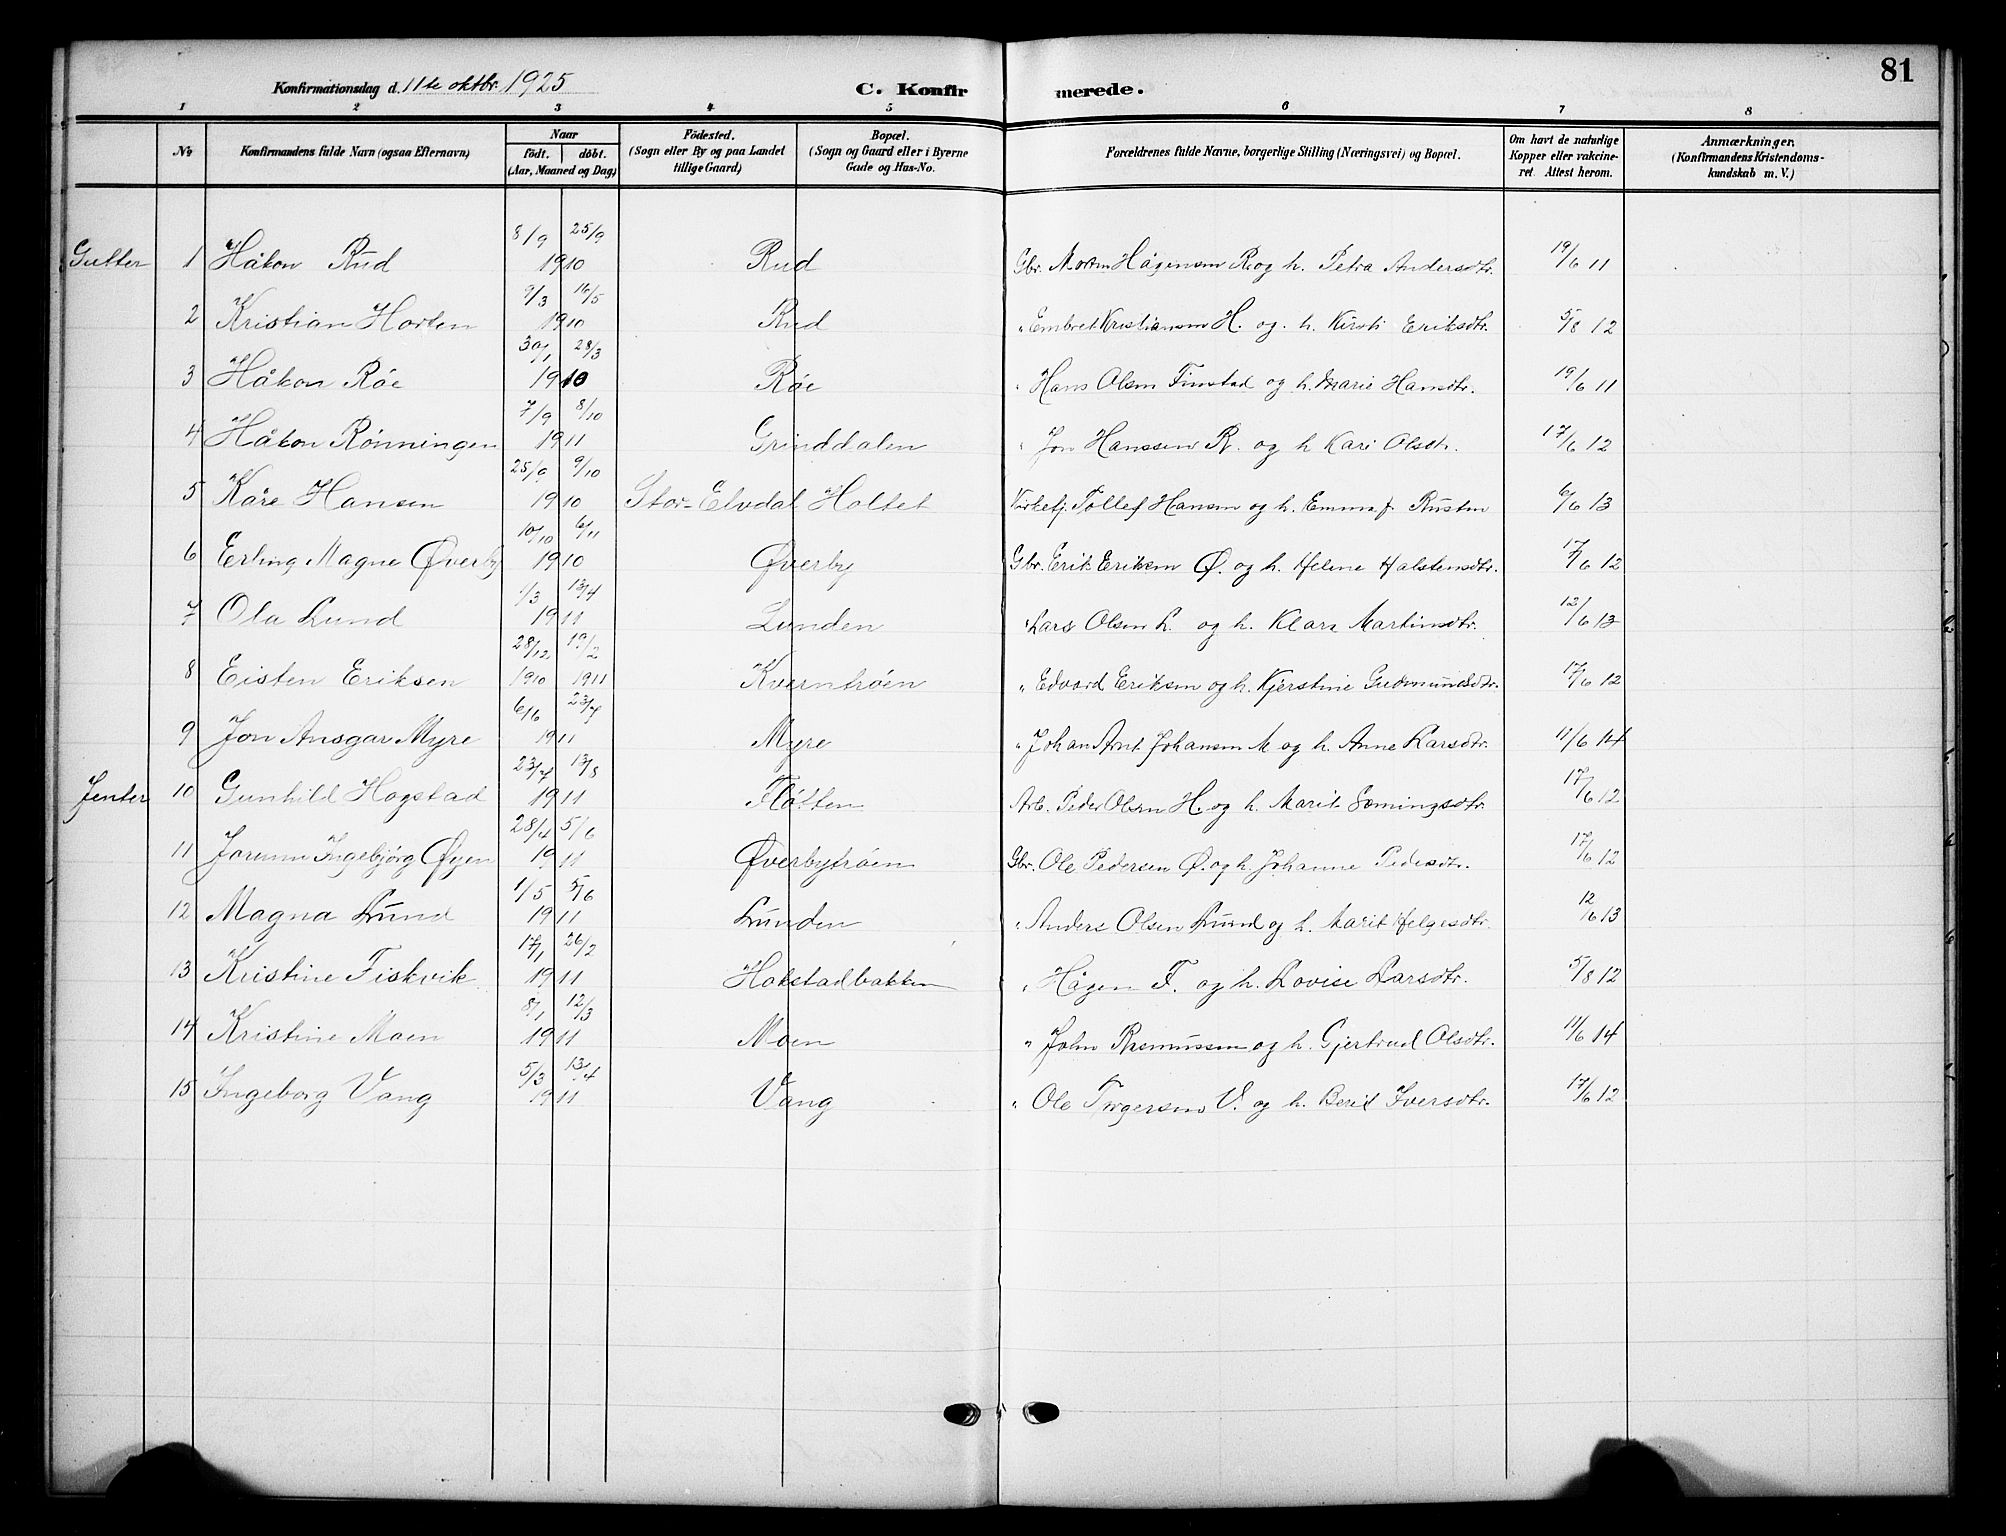 81
Konfirmationsdag d. 11te oktbr. 1925
C. Konfirmerede.
1 2 3 4 5 6 7 8
No Konfirmandens fulde Navn (ogsaa Efternavn) Naar födt. döbt. (Aar, Maaned og Dag) Födested. (Sogn eller By og paa Landet tillige Gaard) Bopæl. (Sogn og Gaard eller i Byerne Gade og Hus-No. Forældrenes fulde Navne, borgerlige Stilling (Næringsvei) og Bopæl. Om havt de naturlige Kopper eller vakcineret. Attest herom. Anmærkninger. (Konfirmandens Kristendomskundskab m. V.)
Gutter 1 Håkon Rud 8/9 25/9 1910 Rud Gbr. Morten Hågensen R. og h. Petra Andersdtr. 19/6 11
2 Kristian Horten 9/3 16/5 1910 Rud " Embret Kristiansen H. og h. Kirsti Eriksdtr. 5/8 12
3 Håkon Röe 30/1 28/3 1910 Röe " Hans Olsen Finstad og h. Marie Hansdtr. 19/6 11
4 Håkon Rönningen 7/9 8/10 1911 Grinddalen " Jon Hanssen R. og h Kari Olsdtr. 17/6 12
5 Kåre Hansen 25/9 9/10 1910 Stor-Elvdal Holtet Virkefj. Tollef Hansen og h. Emma f. Rusten 6/6 13
6 Erling Magne Øverby 10/10 6/11 1910 Øverby Gbr. Erik Eriksen Ø. og h. Helene Halstensdtr. 17/6 12
7 Ola Lund 1/3 13/4 1911 Lunden " Lars Olsen L. og h. Klara Martinsdtr. 12/6 13
8 Eisten Eriksen 28/12 1910 19/2 1911 Kverntröen " Edvard Eriksen og h. Kjerstine Gudmundsdtr. 17/6 12
9 Jon Ansgar Myre 6/6 23/7 1911 Myre " Johan Arnt Johansen M og h. Anne Larsdtr. 11/6 14
Jenter 10 Gunhild Hogstad 23/7 13/8 1911 Flötten Arb. Peder Olsen H. og h. Marit Sømingsdtr. 17/6 12
11 Jorunn Ingebjörg Øyen 28/4 5/6 1911 Øverbytröen Gbr. Ole Pedersen Ø. og h. Johanne Pedersdtr. 17/6 12
12 Magna Lund 1/5 5/6 1911 Lunden " Anders Olsen Lund og h. Marit Helgesdtr. 12/6 13
13 Kristine Fiskvik 17/1 26/2 1911 Hokstadbakken " Hågen F. og h. Lovise Larsdtr. 5/8 12
14 Kristine Moen 8/1 12/3 1911 Moen " John Rasmussen og h. Gjertrud Olsdtr. 11/6 14
15 Ingeborg Vang 5/3 13/4 1911 Vang " Ole Torgersen V. og h. Berit Iversdtr. 17/6 12